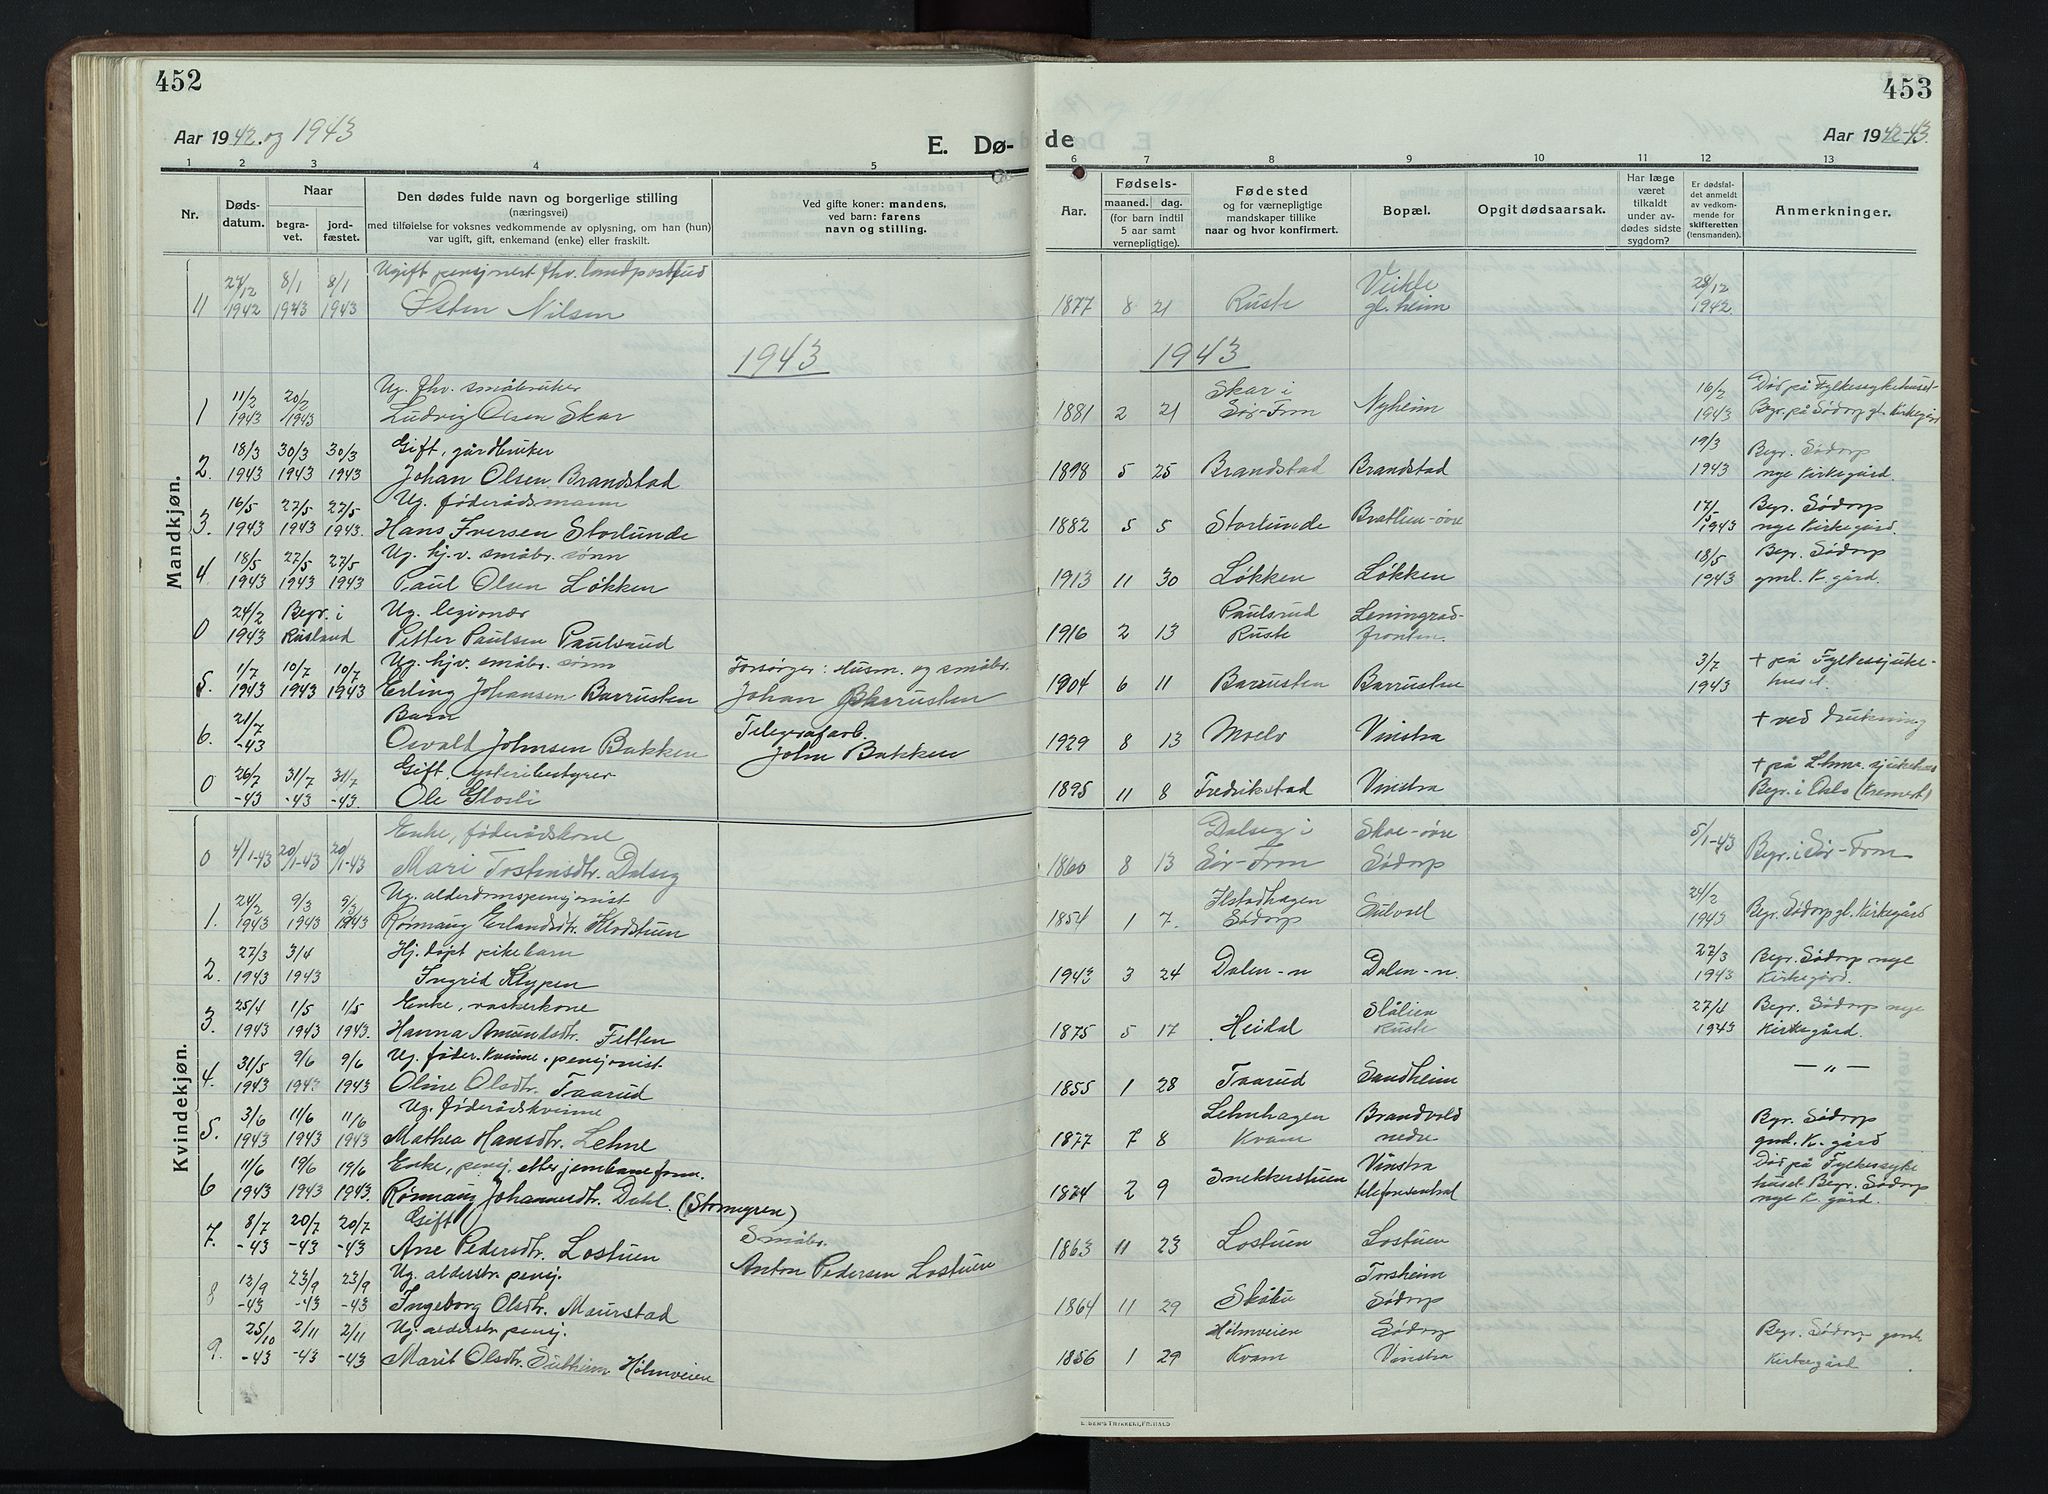 452
Aar 1942. og 1943
E. Dø-
1 2 3 4 5
Nr.
Døds-
datum.
Naar
begra-
vet.
jord-
fæstet.
Den dødes fulde navn og borgerlige stilling
(næringsvei)
med tilføielse for voksnes vedkommende av oplysning, om han (hun)
var ugift, gift, enkemand (enke) eller fraskilt.
Ved gifte koner: mandens,
ved barn: farens
navn og stilling.
Mandkjøn.
27/12 8/1 8/1 Ugift pensjonert fhv. landpostbud
11 1942 1943 1943 Østen Nilsen
1943
11/2 20/2 Ug. fhv. småbruker
1 1943 1943 Ludvig Olsen Skar
18/3 30/3 30/3 Gift, gårdbruker
2. 1943 1943 1943 Johan Olsen Brandstad
16/5 27/5 27/5 Ug. føderådsmann
3. 1943 1943 1943. Hans Iversen Storlunde
18/5 27/5 27/5 Ug. hj.v. småbr. sønn
4 1943 1943 1943 Paul Olsen Løkken
24/2 Begr. i Ug. legionær
0 1943 Rusland Petter Paulsen Paulsrud
1/7 10/7 10/7 Ug. hjv. småbr. sønn Forsørger: Husm. og småbr.
5. 1943 1943 1943 Erling Johansen Barrusten Johan Barrusten
21/7 Barn Telegrafarb.
6. -43 Osvald Johnsen Bakken John Bakken
26/7 31/7 31/7 Gift ysteribestyrer
0 -43 -43 -43 Ole Glosli
Kvindekjøn.
Enke, føderådskone
0 4/1-43 20/1-43 20/1-43 Mari Tostensdtr. Dalseg
24/2 9/3 9/3 Ug. alderdomspensjonist
1. 1943 1943 1943 Rønnaug Erlandsdtr. Klodstuen
27/3 3/4 Hj. døpt pikebarn
2 1943 1943 Ingrid Klypen
25/4 1/5 1/5 Enke, vaskerkone
3. 1943 1943 1943. Hanna Amundsdtr. Fetten
31/5 9/6 9/6 Ug. føder.kvinne, pensjonist
4. 1943 1943 1943 Oline Olsdtr. Taarud
3/6 11/6 11/6 Ug. føderådskvinne
5. 1943 1943 1943 Mathea Hansdtr. Lehne
11/6 19/6 19/6 Enke, pensj. etter jernbaneform.
6 1943 1943 1943. Rønnaug Johannesdtr. Dahl. (Stomgren)
8/7 20/7 20/7 Gift Småbr.
7. -43 -43 -43 Ane Pedersdtr. Lostuen Anton Pedersen Lostuen
12/9 23/9 23/9 Ug. alderstr. pensj.
8 -43 -43 -43 Ingeborg Olsdtr. Maurstad
25/10 2/11 2/11 Ug. alderstr. pensj.
9. -43 -43 -43 Marit Olsdtr. Sutheim Holmveien
453
de
Aar 1942-43.
6 7 8 9 10 11 12 13
Aar.
Fødsels-
maaned. dag.
(for barn indtil
5 aar samt
vernepligtige).
Fødested
og for værnepligtige
mandskaper tillike
naar og hvor konfirmert.
Bopæl.
Opgit dødsaarsak.
Har læge
været
tilkaldt
under av-
dødes sidste
sygdom?
Er dødsfal-
det anmeldt
av vedkom-
mende for
skifteretten
(lensmanden).
Anmerkninger.
Veikle 28/12
1877 8 21 Ruste gl. heim 1942.
1943
Skar i 16/2 Død på Fylkessykehuset-
1881 2 21 Sør-Fron Nyheim 1943 Begr. på Sødorp gl. Kirkegård
19/3 Begr. Sødorp
1898 5 25 Brandstad Brandstad 1943 nye Kirkegård.
17/5 Begr. Sødorp
1882 5 5 Storlunde Bratlien-øvre 1943 nye Kirkegård.
18/5 Begr. Sødorp
1913 11 30 Løkken Løkken 1943 gml. K. gård.
Paulsrud Leningrad-
1916 2 13 Ruste fronten.
3/7 + på Fylkessjuke-
1904 6 11 Barrusten Barrusten 1943 huset.
+ ved drukning
1929 8 13 Moelv Vinstra
+ på Lhmr. sjukehus
1895 11 8 Fredrikstad Vinstra Begr. i Oslo (Kremert)
Dalseg i Skoe-øvre 5/1-43
1860 8 13 Sør-Fron Sødorp Begr. i Sør-Fron
Ilstadhagen 24/2
1854 1 7. Sødorp Sulvoll 1943 Begr. Sødorp gl. Kirkegård
27/3 Begr. Sødorp nye
1943 3 24 Dalen-n Dalen-n. 1943 Kirkegård.
Slålien 27/4 Begr. Sødorp nye
1875 5 17 Heidal Ruste 1943 Kirkegård.
1855 1 28 Taarud Sandheim — „ —
Lehnhagen Brandvold Begr. Sødorp
1877 7 8 Kvam nedre gml. K. gård
Vinstra Død på Fylkessyke
1874 2 9 Snekkerstuen telefonsentral huset Begr. Sødorp
nye K. gård.
1863 11 23 Lostuen Lostuen
Torsheim
1864 11 29 Skåbu Sødorp
Holmveien Sødorp Begr. Sødorp gml.
1856 1 29 Kvam Vinstra Kirkegård